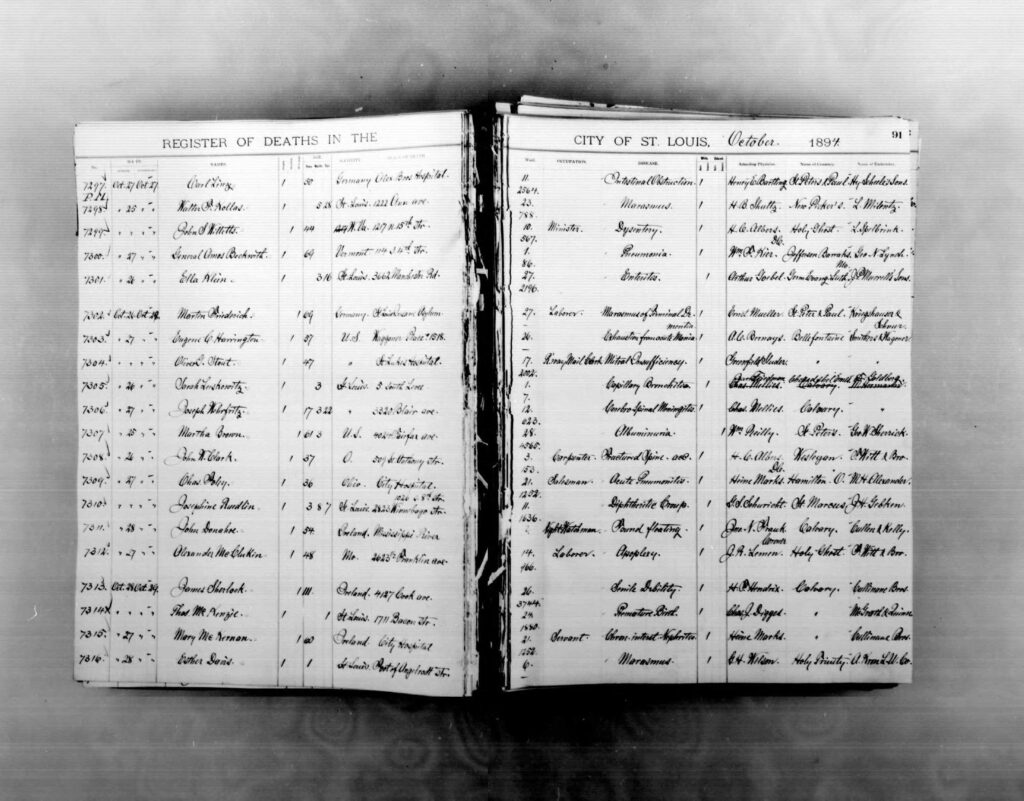 REGISTER OF DEATHS IN THE CITY OF ST. LOUIS, October 1894 91
No. DATE NAMES AGE NATIVITY PLACE OF DEATH Ward. OCCUPATION. DISEASE. Attending Physician. Name of Cemetery. Name of Undertaker.
7297 Oct. 27 Oct. 27 Carl Linz 1 50 Germany Alex Bros Hospital. 11. Intestinal Obstruction 1 Henry E. Bartling St Peters & Paul Hy Scheele & Sons.
P.M. 2564.
7298 " 25 " " Walter P. Kollas 1 5 28 St Louis. 1222 Ann ave. 23. Marasmus. 1 H. B. Shultz New Picker's
788.
7299 " " " " John S. 1 44 W. Va. 1217 N. 15th Str. 10. Minister Dysentery 1 H. C. Albers. Holy Ghost
567. Db.
7300 " 27 " " General Amos Beckwith 1 69 Vermont 114 S 16th Str. 1. Pneumonia 1 Wm P. Kier Jefferson Barracks Geo. N. Lynch
86. Mo.
7301 " 26 " " Ella Klein 1 3 16 St Louis. 3662 Manchester Rd. 27. Enteritis 1 Arthur Goebel Germ Evang Luth.
2196.
7302 Oct. 26 Oct. 29 Martin Friedrich 1 69 Germany. St Louis Insane Asylum 27. Laborer Marasmus of Terminal De- 1 Ernst Mueller St Peter & Paul. Kriegshauser &
mentia
7303 " 27 " " Eugene C. Harrington 1 37 U.S. Waggoner Place 1518. 26. Exhaustion from acute Mania 1 A. C. Bernays. Bellefontaine Smithers & Wagoner
7304 " " " " Oliver L. Stout 1 47 " St Lukes Hospital. 17. Railway Mail Clerk Mitral Insufficiency. 1 "
2002.
7305 " 26 " " 1 3 St Louis. 3 South Levee 1. Capillary Bronchitis 1 Goldberg
7.
7306 " 27 " " Joseph 1 17 3 22 " 5320 Blair ave. 12. Cerebro Spinal Meningitis 1 Chas. Mollies Calvary. "
623.
7307 " 25 " " Martha Brown. 1 61 3 U.S. 4024 Fairfax ave. 28. Albuminuria 1 Wm Reilly. St Peters. Geo W. Sherrick.
4565.
7308 " 26 " " John W. Clark. 1 37 O. 509 St Anthony Str. 3. Carpenter Fractured Spine - acc. 1 H. C. Albers Wesleyan P. Witt & Bro
153. Db.
7309 " 27 " " Chas. Foley 1 36 Ohio. City Hospital 21. Salesman Acute Pneumonitis 1 Heine Marks. Hamilton O. W. H. Alexander.
1252.
7310 " " " " Josephine Ruedlin 1 3 8 7 St Louis 2823 Winnebago Str. 11. Diphtheritic Croup. 1 St Marcus J. H. Gebken
1636.
7311 " 28 " " John Donahoe 1 54 Ireland. Mississippi River Night Watchman Found floating 1 Jno. N. Frank Calvary. Cullen & Kelly.
Coroner
7312 " 27 " " Alexander McCluken 1 48 Mo. 2623½ Franklin ave. 14. Laborer Apoplexy. 1 J. R. Lemen. Holy Ghost P. Witt & Bro.
466.
7313 Oct. 28 Oct. 29 James Sherlock 1 111 Ireland. 4127 Cook ave. 26. Senile Debility 1 H. P. Hendrix Calvary Cullinane Bros
3744.
7314 " " " " Thos. McKenzie 1 1 St Louis. 1711 Bacon Str. 24. Premature Birth. 1 Chas. J. Digges "
1880.
7315 " 27 " " Mary McKernan 1 60 Ireland City Hospital 21. Servant Chron. interst. Nephritis 1 Heine Marks. " Cullinane Bros.
1252.
7316 " 28 " " Esther Davis 1 1 St Louis. Foot of Angelrodt Str. 6. Marasmus 1 C. H. Wilson Holy Trinity A. Kron L. & U. Co.